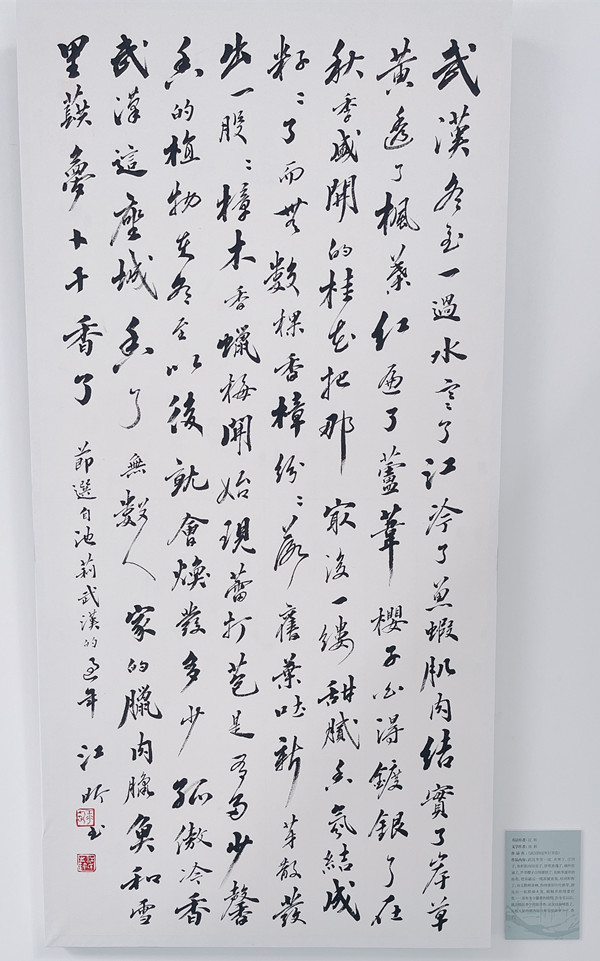 武漢冬至一過水寒了江冷了魚蝦肌肉結實了岸草
黃透了楓葉紅遍了蘆葦櫻子白得鍍銀了在
秋季盛開的桂花把那最後一縷甜膩香氣結成
籽〻了而無數棵香樟紛〻落舊葉吐新芽散發
出一股〻樟木香蠟梅開始現蕾打苞是有多少馨
香的植物在冬至以後就會煥發多少孤傲冷香
武漢這座城香了無數人家的臘肉臘魚和雪
里蕻夢卜干香了
節選自池莉武漢的過年 江昕書